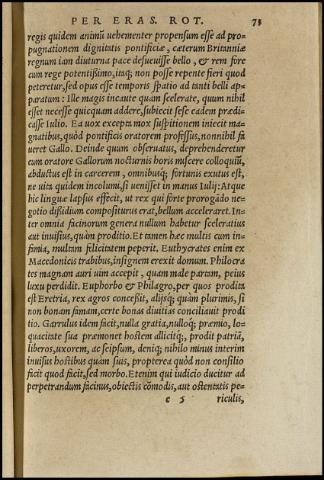 PER ERAS. ROT. 73
regis quidem animũ uehementer propensum esse ad pro-
pugnationem dignitatis pontificiæ, cæterum Britanniæ
regnum iam diuturna pace desueuisse bello, & rem fire
cum rege potentißimo, itaq; non posse repente fieri quod
peteretur, sed opus esse temporis spatio ad tanti belli ap-
paratum: Ille magis incaute quàm scelerate, quum nihil
esset necesse quicquam addere, subiecit sese eadem prædi-
casse Iulio. Ea uox excepta mox suspitionem iniecit ma-
gnatibus, quòd pontificis oratorem professus, nonnihil fa
ueret Gallo. Deinde quum obseruatus, deprehenderetur
cum oratore Gallorum nocturnis horis miscere colloquiũ,
abductus est in carcerem, omnibusq; fortunis exutus est,
ne uita quidem incolumi, si uenisset in manus Iulij: Atque
hic linguæ lapsus effecit, ut rex qui forte prorogãdo ne-
gotio dißidium compositurus erat, bellum acceleraret. In-
ter omnia facinorum genera nullum habetur sceleratius
aut inuisius, quàm proditio. Et tamen hæc multis cum in-
famia, nullam felicitatem peperit. Euthycrates enim ex
Macedonicis trabibus, insignem erexit domum. Philocra
tes magnam auri uim accepit, quam male partam, peius
luxu perdidit. Euphorbo & Philagro, per quos prodita
est Eretria, rex agros conceßit, alijsq; quàm plurimis, si
non bonam famam, certe bonas diuitias conciliauit prodi
tio. Garrulus idem facit, nulla gratia, nulloq; præmio, lo-
quacitate sua præmonet hostem, allicitq;, prodit patriã,
liberos, uxorem, ac seipsum, deniq; nihilo minus interim
inuisus hostibus quàm suis, propterea quòd non consilio
facit quod facit, sed morbo. Etenim qui iudicio ducitur ad
perpetrandum facinus, obiectis cõmodis, aut ostentatis pe-
e 5 riculis,